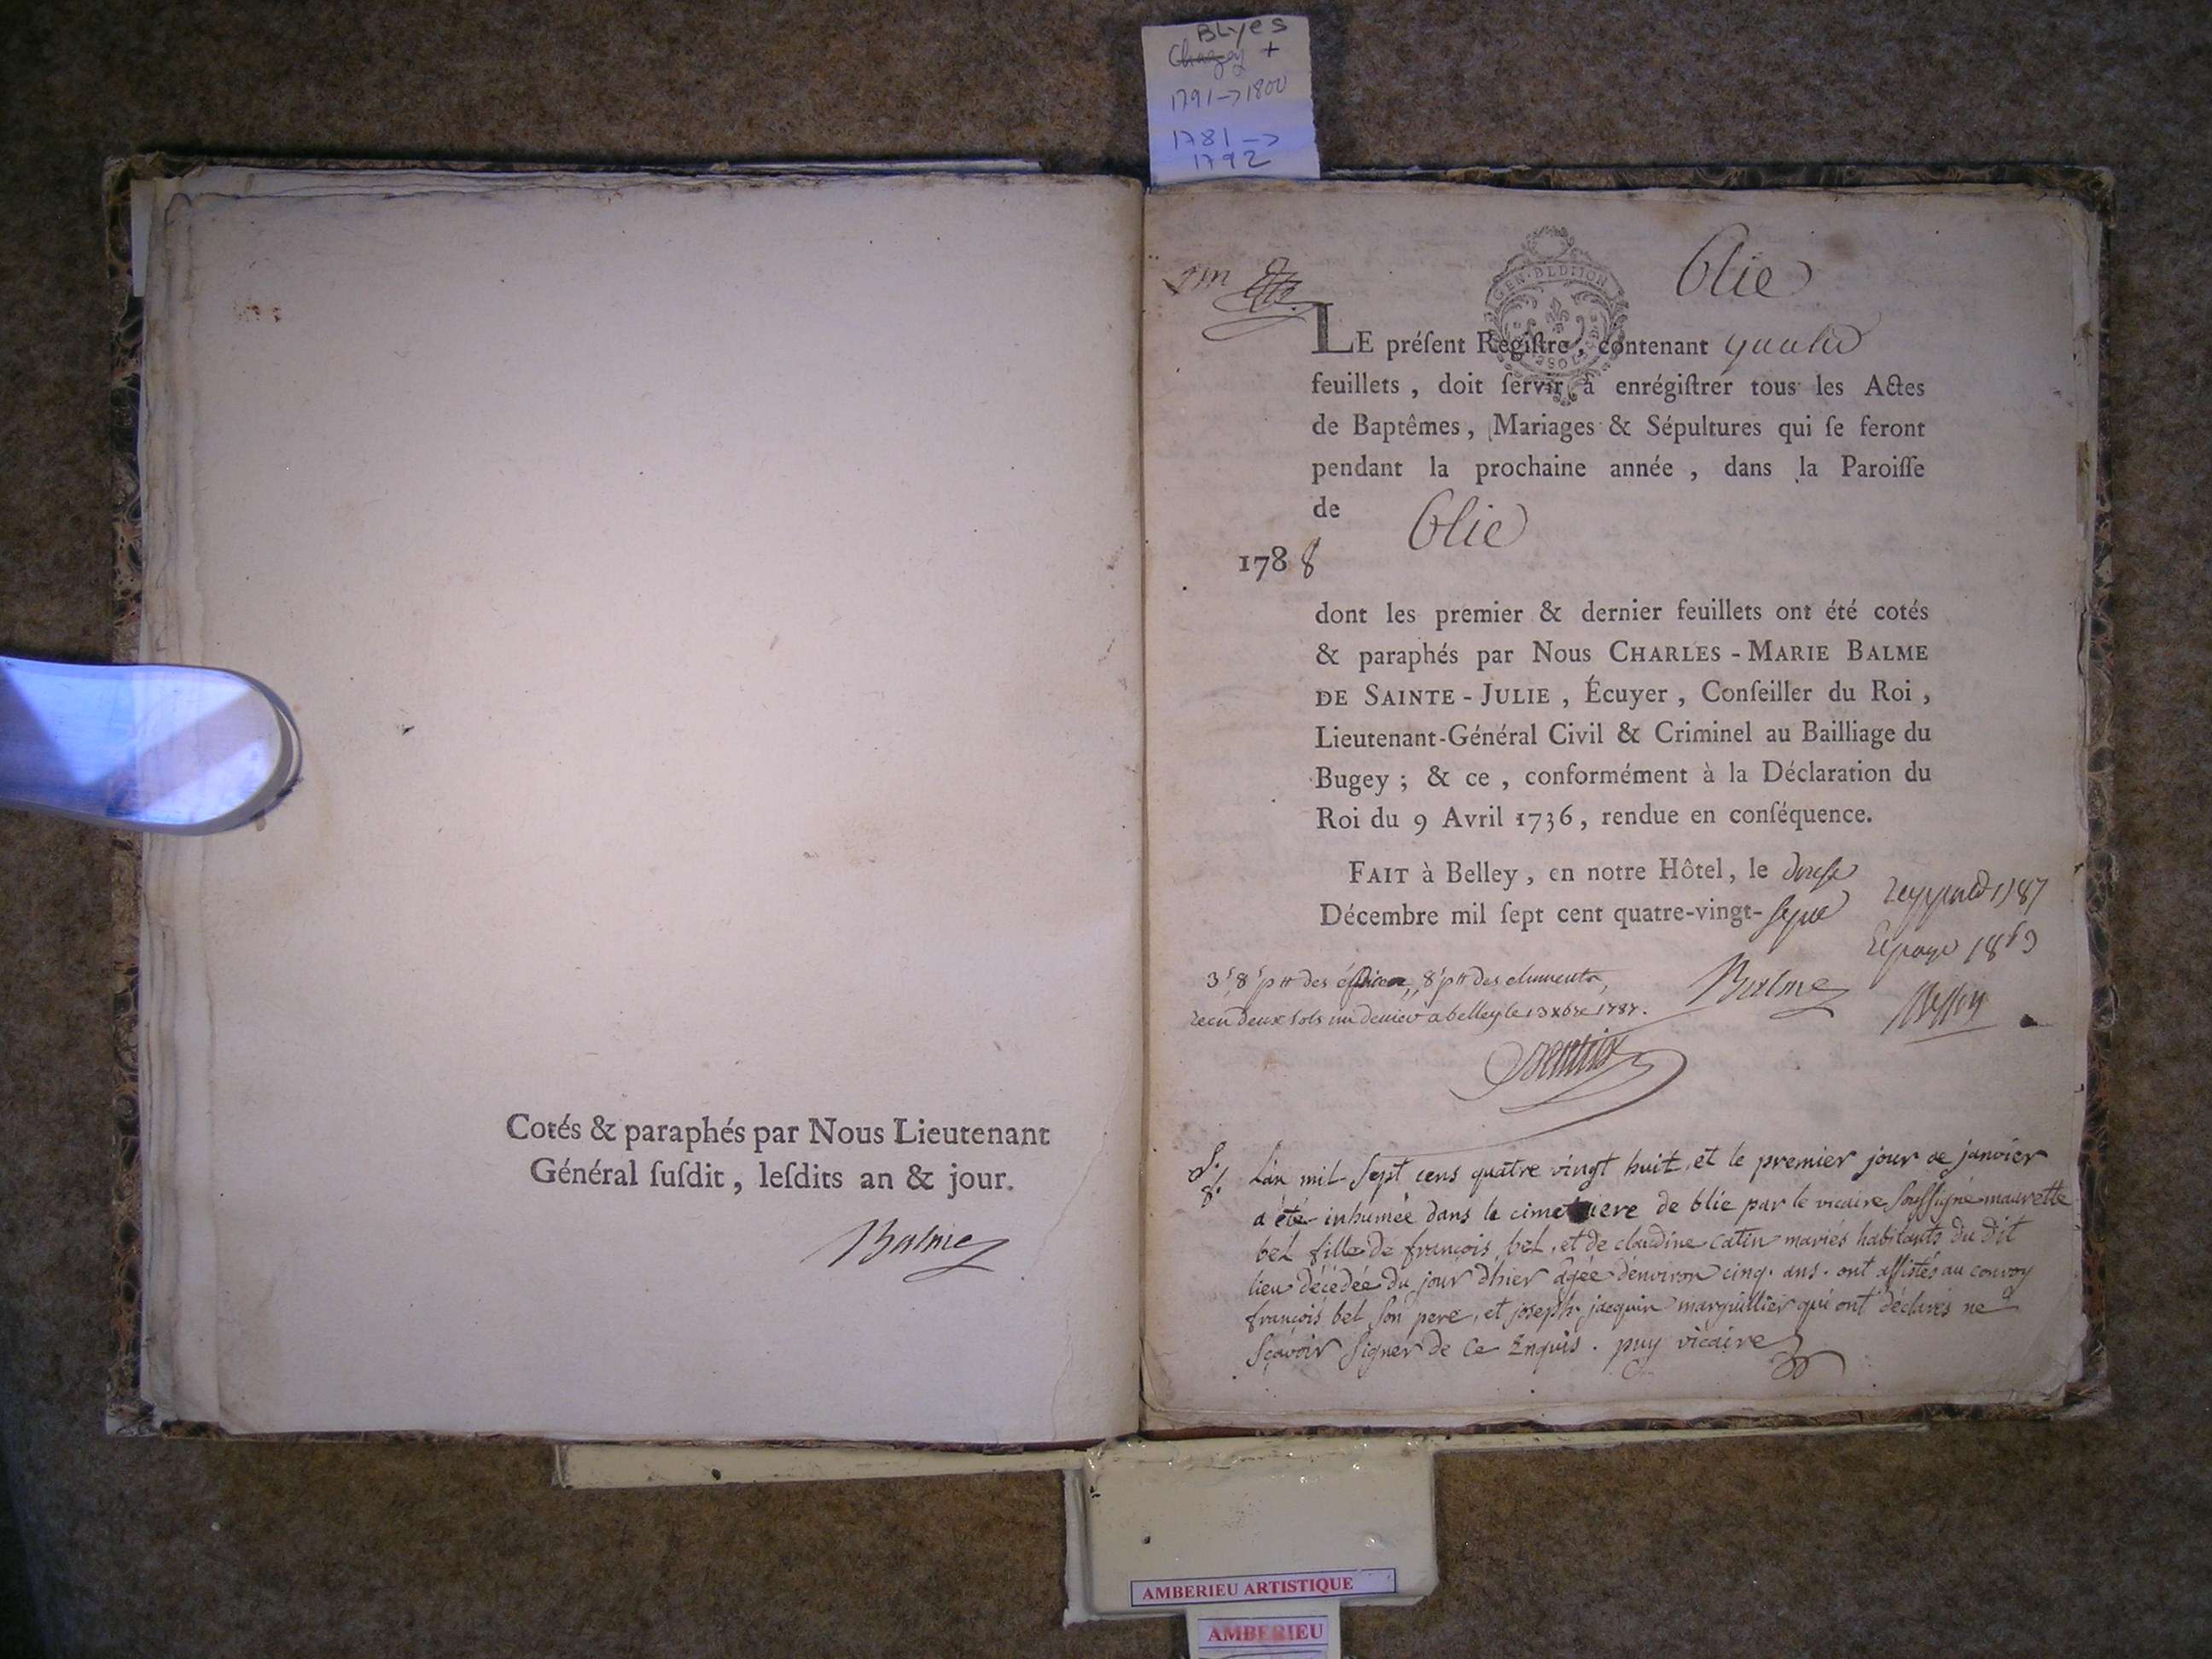 BLyes
Chazey +
1791->1800
1781->
1792
Cotés & paraphés par Nous Lieutenant
Général ſuſdit, leſdits an & jour.
Balme
GEN. BLDIJON
Blie
LE préſent Regiſtre, contenant quatre
feuillets, doit ſervir à enrégiſtrer tous les Actes
de Baptêmes, Mariages & Sépultures qui ſe feront
pendant la prochaine année, dans la Paroiſſe
de Blie
1788
dont les premier & dernier feuillets ont été cotés
& paraphés par Nous CHARLES-MARIE BALME
DE SAINTE-JULIE, Écuyer, Conſeiller du Roi,
Lieutenant-Général Civil & Criminel au Bailliage du
Bugey; & ce, conformément à la Déclaration du
Roi du 9 Avril 1736, rendue en conſéquence.
FAIT à Belley, en notre Hôtel, le douze
Décembre mil ſept cent quatre-vingt-sept
1787
3ˢ 8ᵈ pʳ des 8ˢ pʳ des
Recu deux sols un denier a belley le 13 xbre 1787.
Balme
S.
L'an mil sept cens quatre vingt huit, et le premier jour de janvier
a été inhumée dans le cimetiere de blie par le vicaire soussigné maurette
bel fille de françois bel, et de claudine catin mariés habitants du dit
lieu décédée du jour d'hier agée d'environ cinq ans. ont assistés au convoy
françois bel son pere, et joseph jacquin marguillier qui ont déclarés ne
sçavoir signer de ce Enquis. puy vicaire
AMBERIEU ARTISTIQUE
AMBERIEU